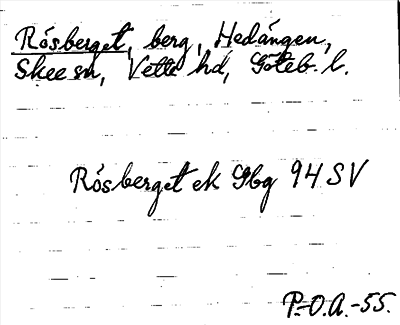 Rösberget, berg, Hedängen,
Skee sn, Vette hd, Göteb. l.
Rösberget ek Gbg 94 SV
P.O.A.-55.